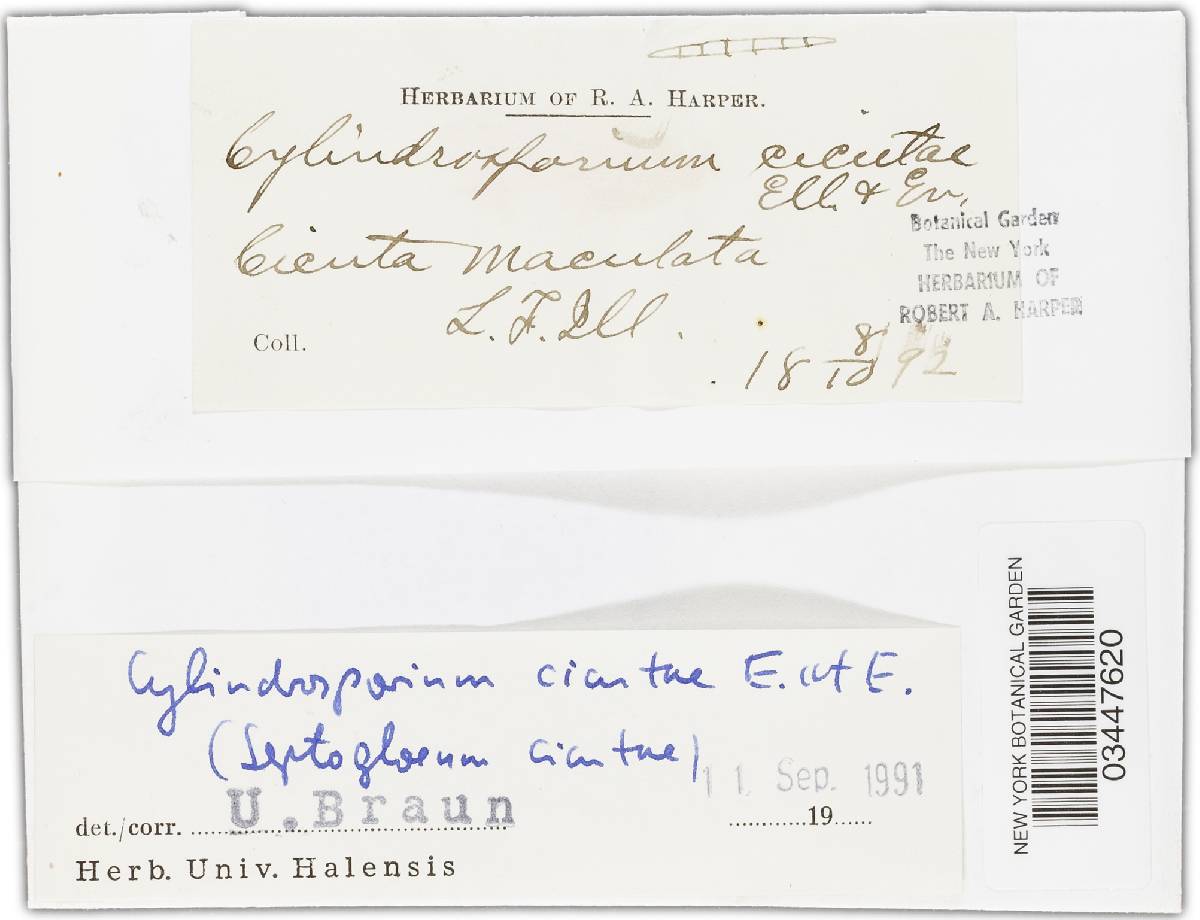 HERBARIUM OF R. A. HARPER.
Cylindrosporium cicutae
Ell. & Ev.
Cicuta maculata
Botanical Garden
The New York
HERBARIUM OF
ROBERT A. HARPER
L. F.
Coll.
18 8/10 92
NEW YORK BOTANICAL GARDEN
03447620
Cylindrosporium cicutae E. et E.
(Septogloeum cicutae)
11. Sep. 1991
det./corr. U. Braun 19
Herb. Univ. Halensis